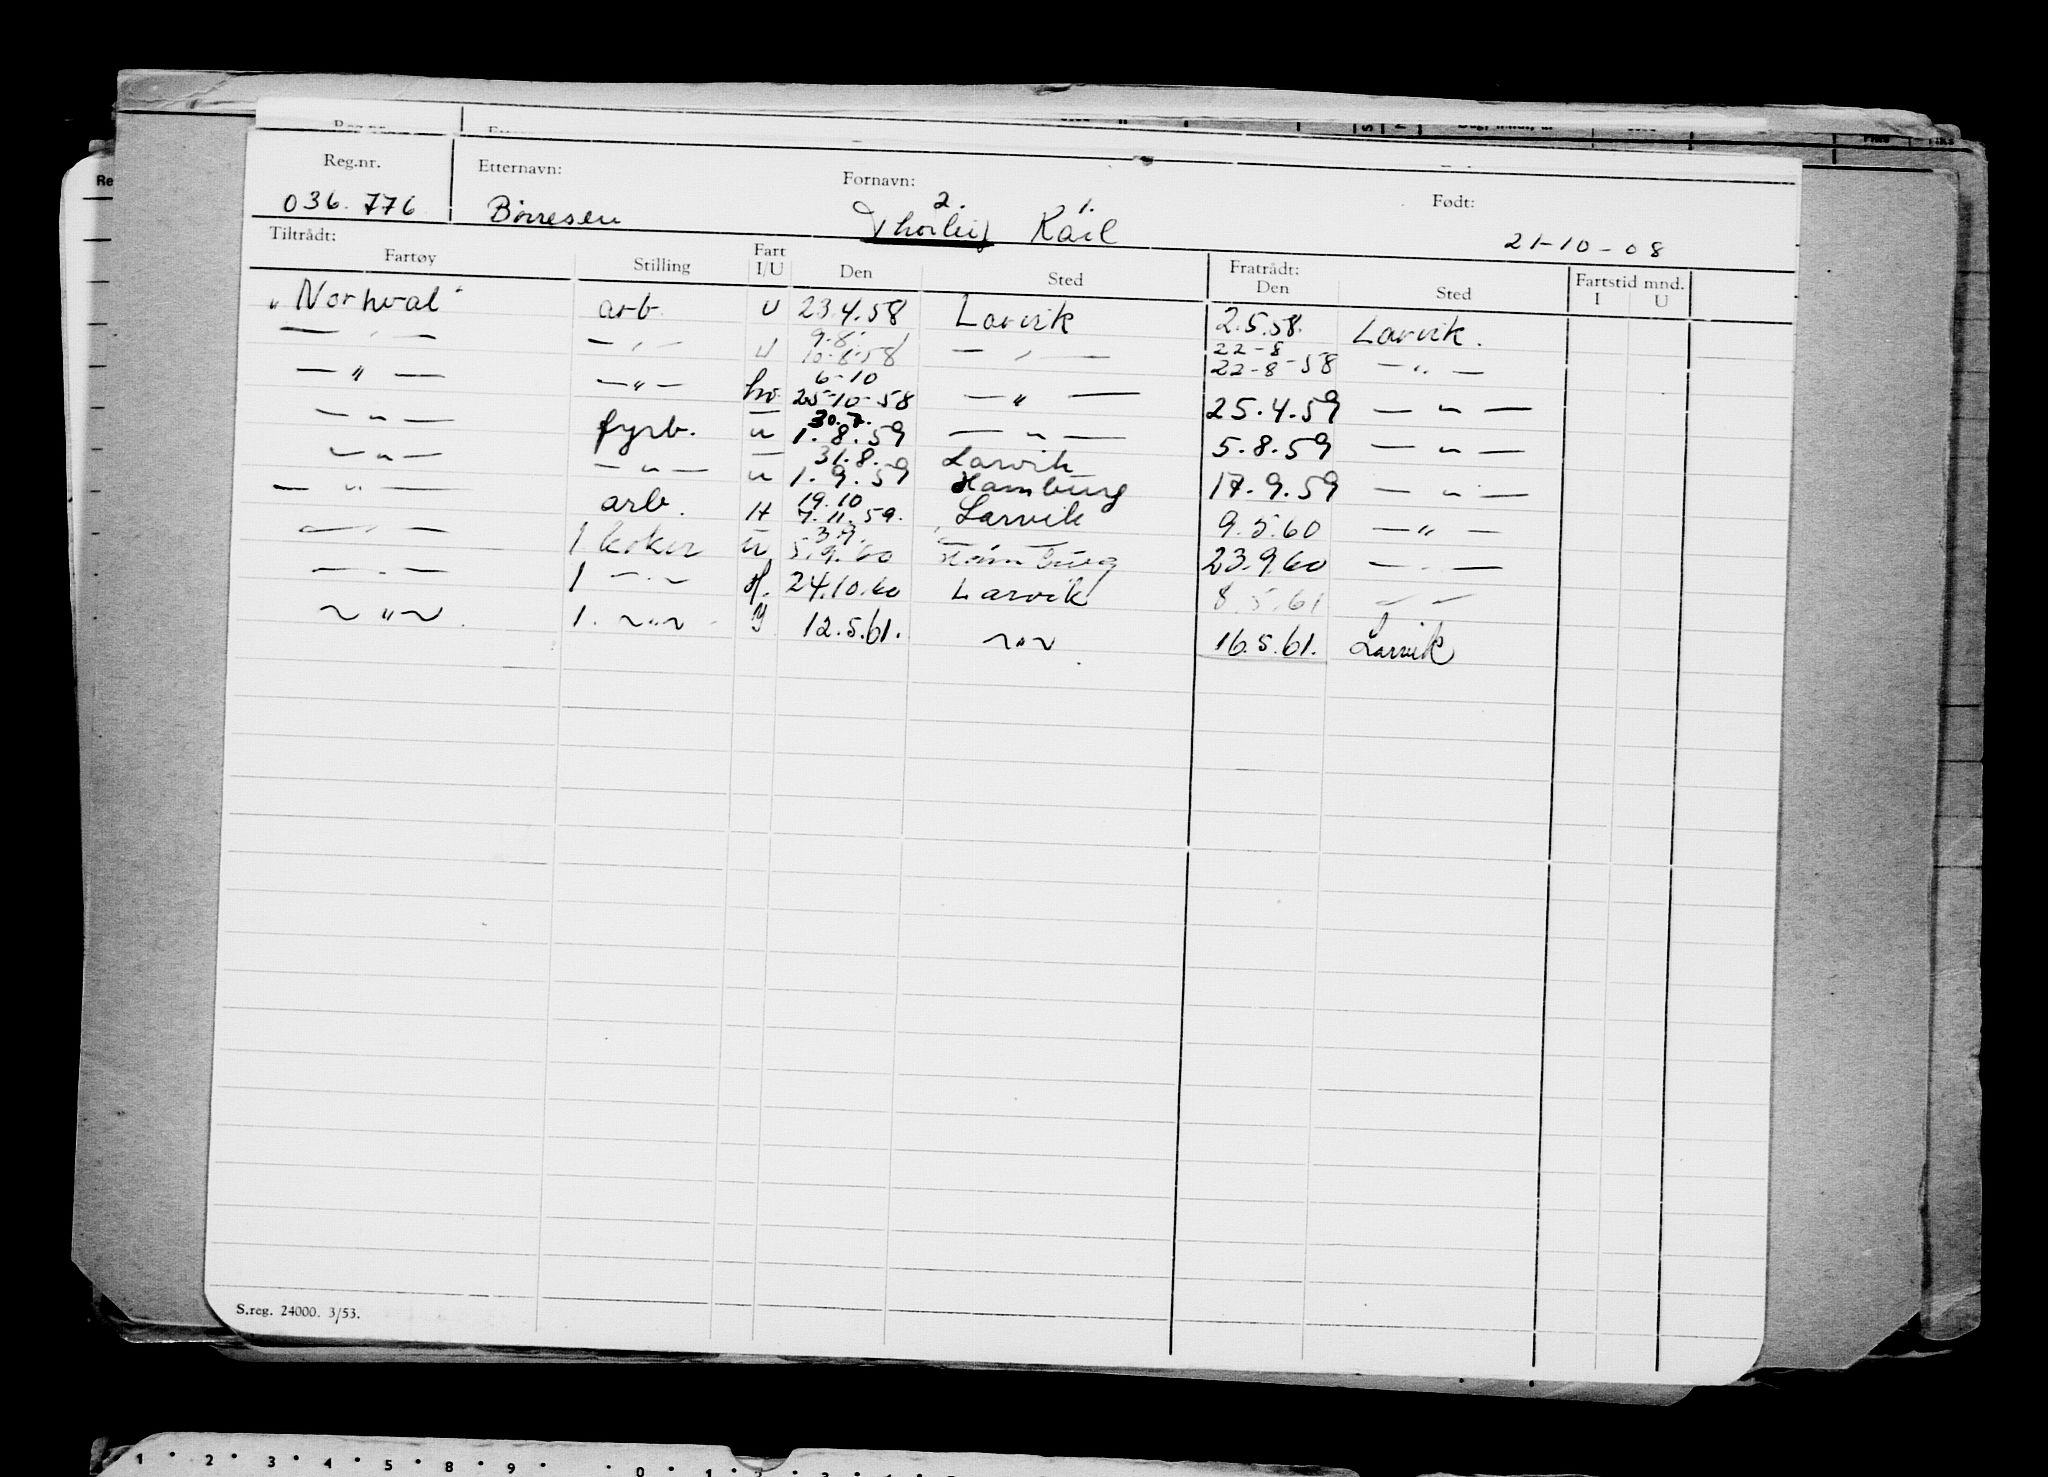 Reg.nr. Etternavn: Fornavn: Født:
036.776 Børresen 2. Thorleif 1. Kåre 21-10-08
Tiltrådt: Fratrådt: Fartstid mnd.
Fartøy Stilling Fart I/U Den Sted Den Sted I U
"Norhval" arb. U 23.4.58 Larvik 2.5.58. Larvik.
— " — — " — U 9.8. 10.8.58 — " — 22-8 22-8-58 — " —
— " — — " — hv. 6-10 25-10-58 — " — 25.4.59 — " —
— " — fyrb. u 30.7. 1.8.59 — " — 5.8.59 — " —
— " — — " — u 31.8. 1.9.59 Larvik Hamburg 17.9.59 — " —
— " — arb. H 19.10 7.11.59. Larvik 9.5.60 — " —
— " — 1 koker u 3.9. 5.9.60 Hamburg 23.9.60 — " —
— " — 1 — " — H. 24.10.60 Larvik 8.5.61 — " —
— " — 1. — " — 12.5.61. — " — 16.5.61. Larvik
S.reg. 24000. 3/53.
1 2 3 4 5 8 9 0 1 2 3